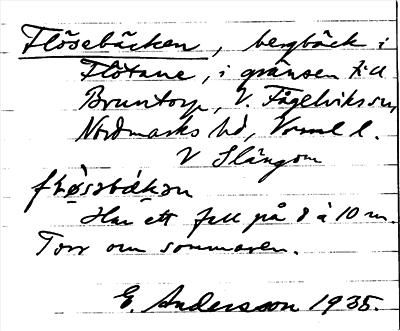 Flösebäcken, bergbäck i
Flötane, i gränsen till
Bruntorp, V. Fågelviks sn,
Nordmarks hd, Vrml l.
V Slängom
fLø̀sabækan
Har ett fall på 8 à 10 m.
Torr om sommaren.
E. Andersson 1935.